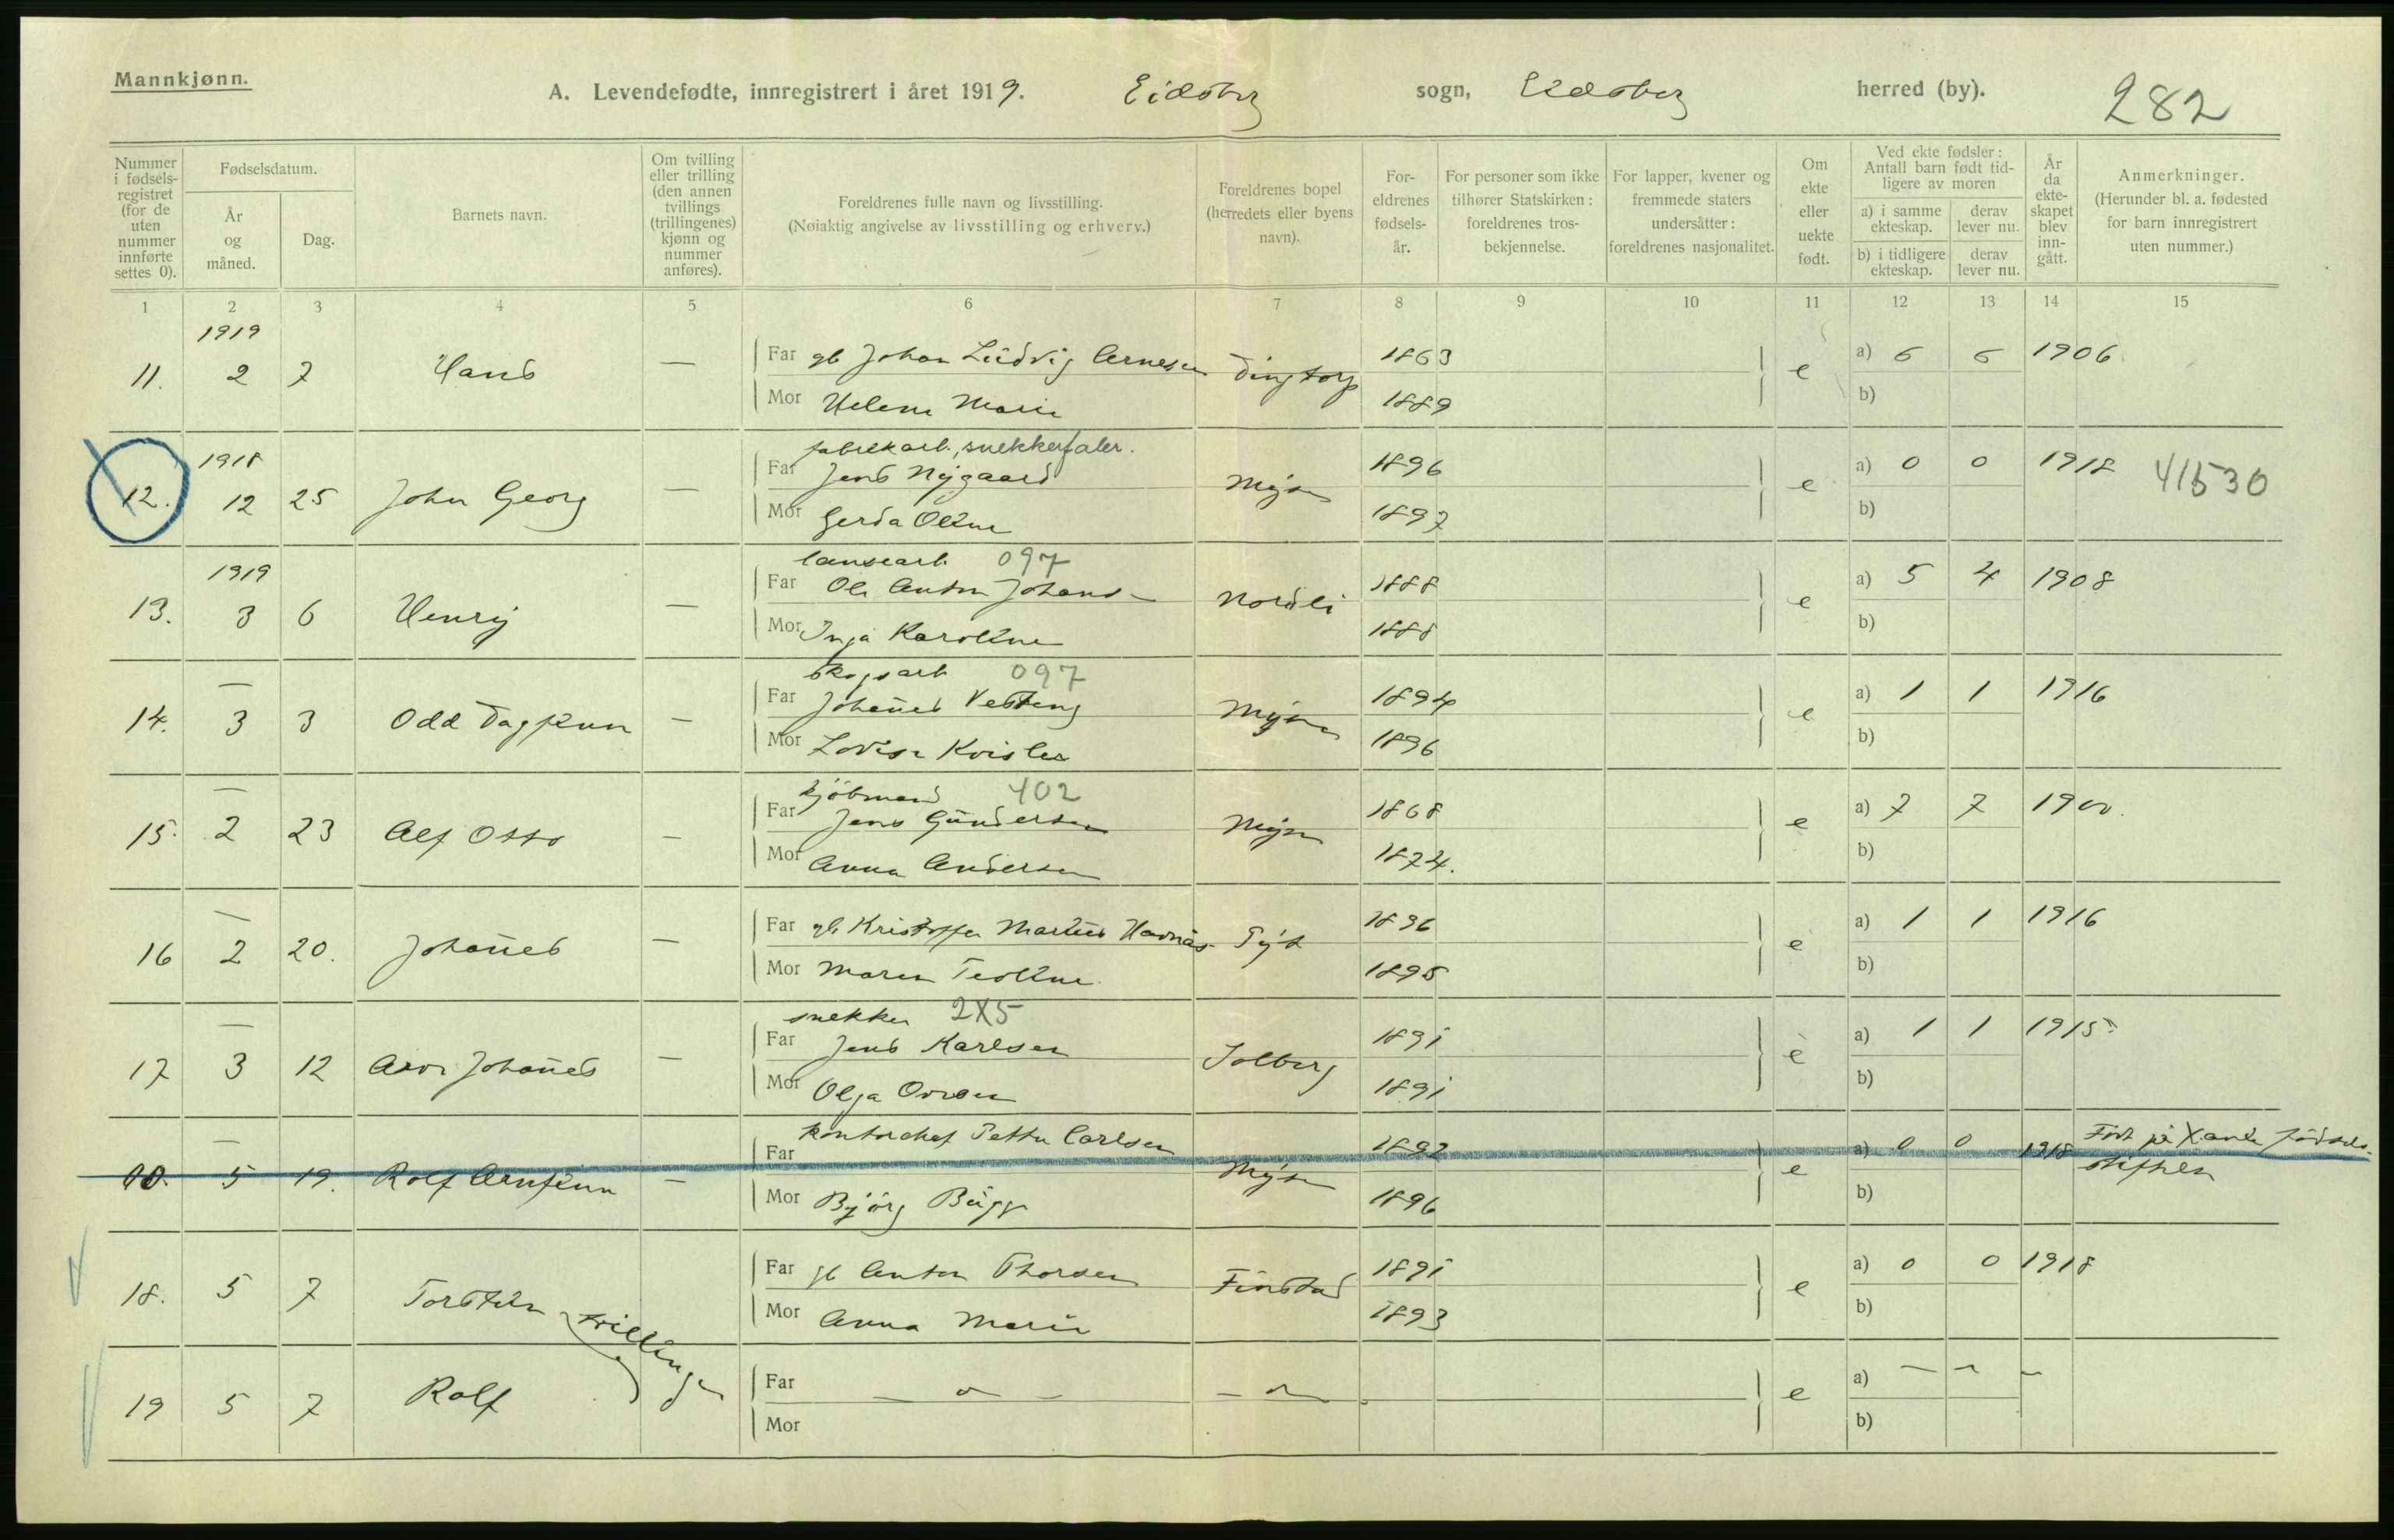 Mannkjønn.
A. Levendefødte, innregistrert i året 1919. Eidsberg sogn, Eidsberg herred (by). 282
Nummer i fødsels-registret (for de uten nummer innførte settes 0).
Fødselsdatum.
År og måned.
Dag.
Barnets navn.
Om tvilling eller trilling (den annen tvillings (trillingenes) kjønn og nummer anføres).
Foreldrenes fulle navn og livsstilling.
(Nøiaktig angivelse av livsstilling og erhverv.)
Foreldrenes bopel (herredets eller byens navn).
For-eldrenes fødsels-år.
For personer som ikke tilhører Statskirken: foreldrenes tros-bekjennelse.
For lapper, kvener og fremmede staters undersåtter: foreldrenes nasjonalitet.
Om ekte eller uekte født.
Ved ekte fødsler: Antall barn født tid-ligere av moren
a) i samme ekteskap.
derav lever nu.
b) i tidligere ekteskap.
derav lever nu.
År da ekte-skapet blev inn-gått.
Anmerkninger.
(Herunder bl. a. fødested for barn innregistrert uten nummer.)
1 2 3 4 5 6 7 8 9 10 11 12 13 14 15
1919
11. 2 7 Hans — Far gb Johan Ludvig Arnesen Dingtorp 1863 e a) 6 6 1906
Mor Helene Marie 1889 b)
1918 fabrikarb., snekkerfaler.
12. 12 25 John Georg — Far Jens Nygaard Mysen 1896 e a) 0 0 1918 41530
Mor Gerda Oline 1897 b)
1919 097
13. 3 6 Henry — Far Ole Anton Johans- Nordli 1888 e a) 5 4 1908
Mor Inga Karoline 1888 b)
— skogsarb 097
14. 3 3 Odd Dagfinn — Far Johannes Vesteng Mysen 1894 e a) 1 1 1916
Mor Lovise Kvisler 1896 b)
— kjøbmand 402
15. 2 23 Alf Otto — Far Jens Gundersen Mysen 1868 e a) 7 7 1900.
Mor Anna Andersen 1874. b)
—
16 2 20. Johannes — Far gb Kristoffer Martius Havnås 1896 e a) 1 1 1916
Mor Maren Teoline 1895 b)
— snekker 2X5
17 3 12 Arve Johannes — Far Jens Karlsen Solberg 1891 e a) 1 1 1915
Mor Olga 1891 b)
— kontorchef Petter Carlsen
5 19. Rolf Arnfinn — Far Mysen 1892 e a) 0 0 1918 Født på X.ania fødsels-stiftelse
Mor Bjørg Bugge 1896 b)
18. 5 7 Torstein Far gb Anton Thorsen Finstad 1891 e a) 0 0 1918
tvillinger
Mor Anna Marie 1893 b)
19 5 7 Rolf Far — " — — " — e a) — — —
Mor b)